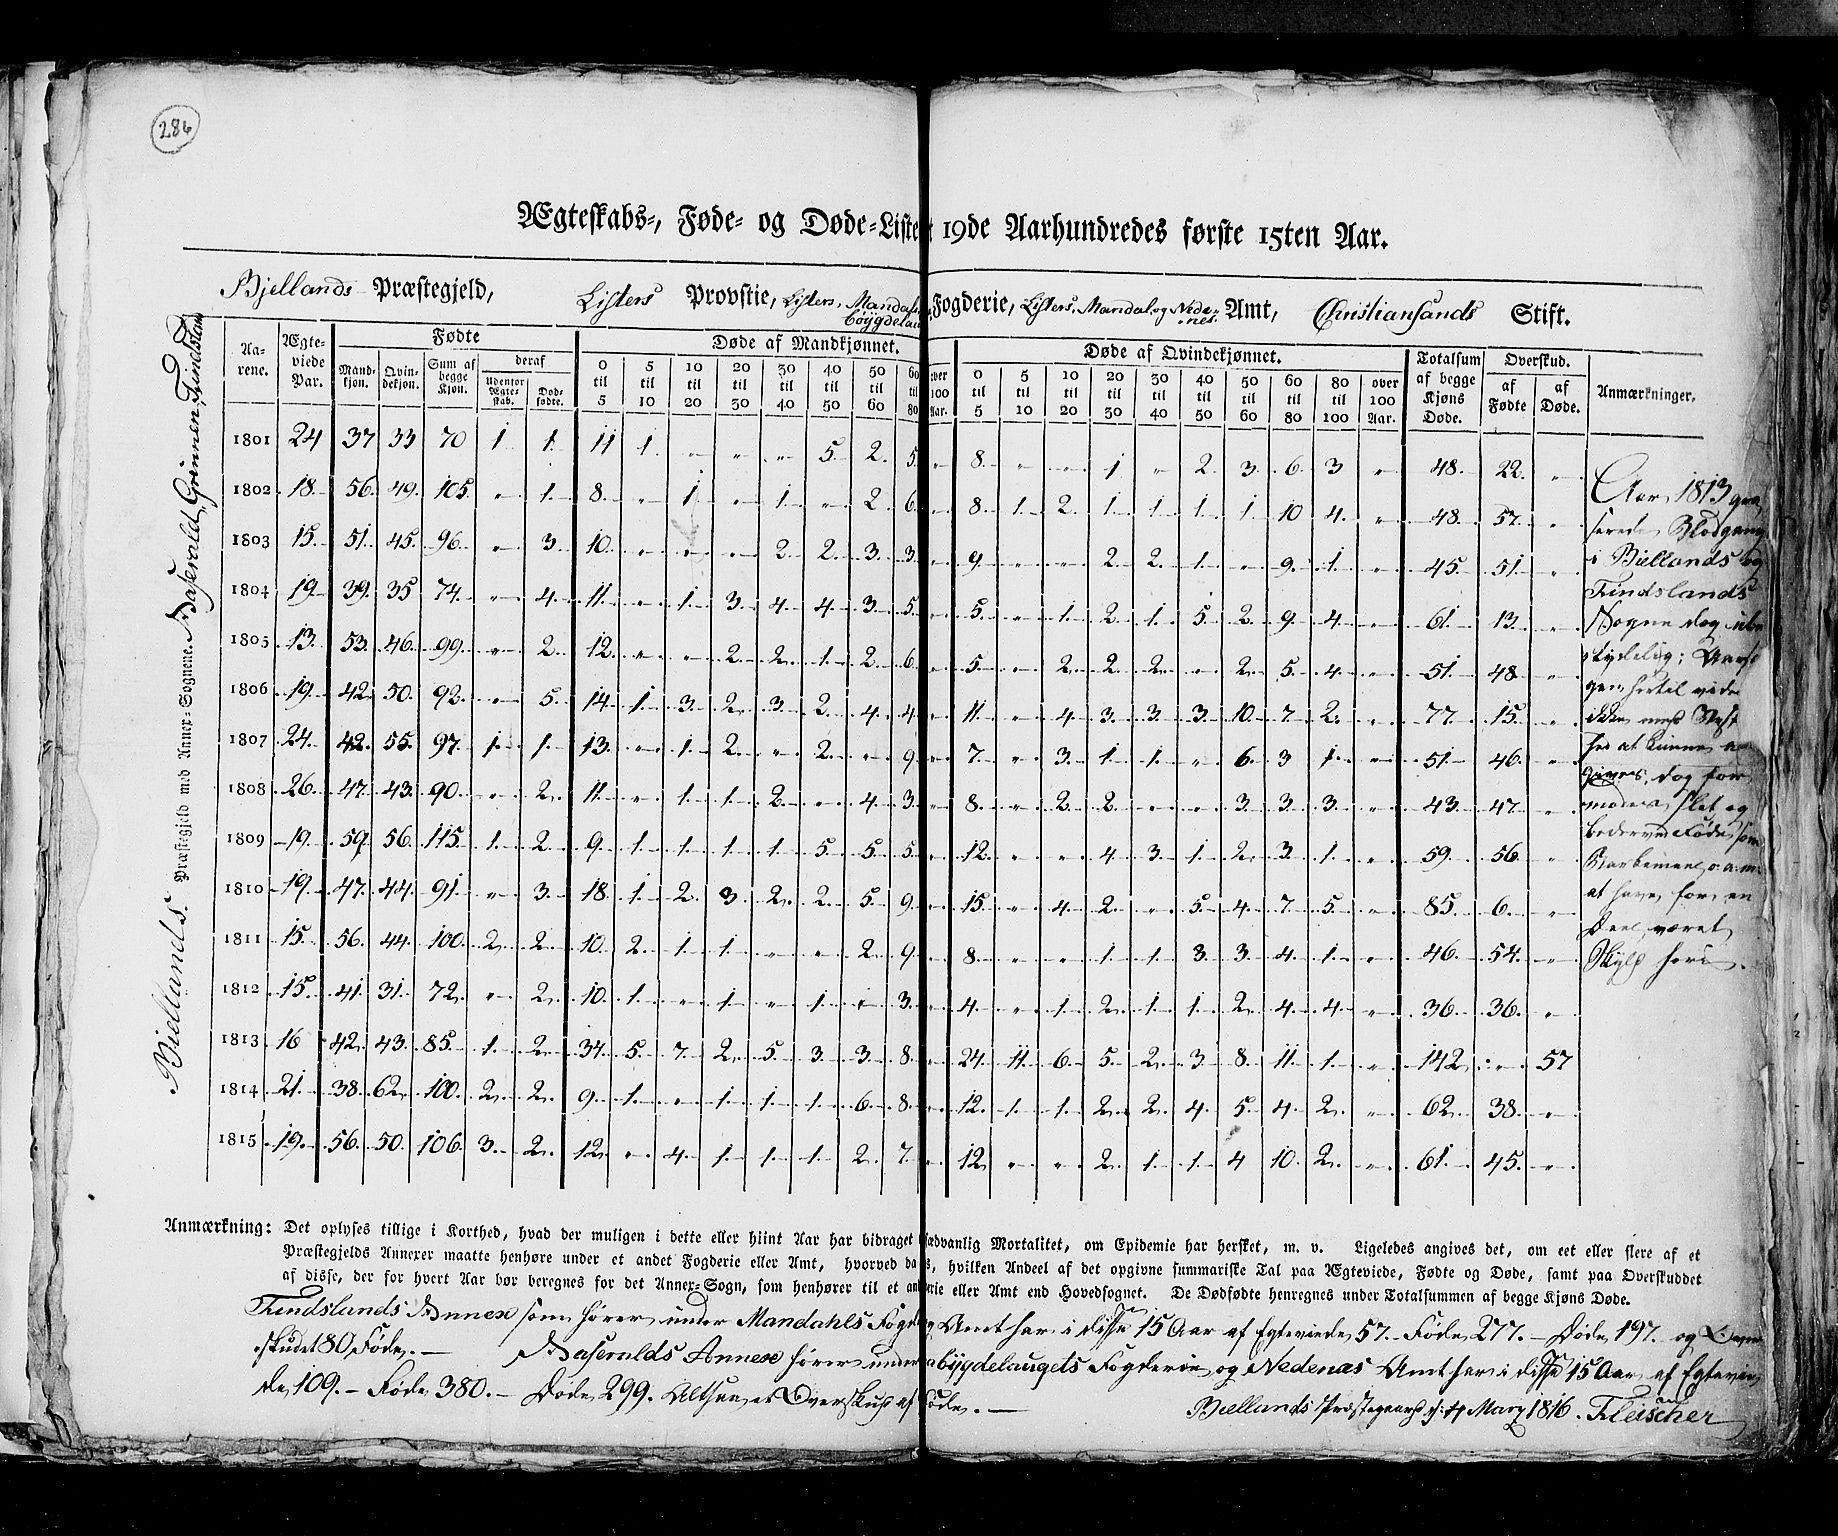 286
Ægteskabs-, Føde- og Døde-Liste 19de Aarhundredes første 15ten Aar.
Bjellands Præstegjeld, Listers Provstie, Listers, Mandals Fogderie, Listers, Mandal og Nede- Amt, Christiansands Stift.
Bjellands Præstegjeld med Annex-Sognene
Aarene. Ægteviede Par. Fødte Døde af Mandkjønnet. Døde af Qvindekjønnet. Totalsum af begge Kjøns Døde. Overskud. Anmærkninger.
Mandkjøn. Qvindekjøn. Sum af begge Kjøn. deraf Udentor Ægteskab. Dødfødte. 0 til 5 5 til 10 10 til 20 20 til 30 30 til 40 40 til 50 50 til 60 60 til 80 over 100 Aar. 0 til 5 5 til 10 10 til 20 20 til 30 30 til 40 40 til 50 50 til 60 60 til 80 80 til 100 over 100 Aar. af Fødte af Døde.
1801 24 37 33 70 1 1 11 1 " " " 5 2 5 " 8 " " 1 " 2 3 6 3 " 48 22 "
1802 18 56 49 105 " 1 8 " 1 " 1 " 2 6 " 8 1 2 1 1 1 1 10 4 " 48 57 "
1803 15 51 45 96 " 3 10 " " " 2 2 3 3 " 9 " " 2 2 1 " 9 1 " 45 51 "
1804 19 39 35 74 " 4 11 " 1 3 4 4 3 5 " 5 " 1 2 1 5 2 9 4 " 61 13 "
1805 13 53 46 99 " 2 12 " " 2 2 1 2 6 " 5 " 2 2 2 " 2 5 4 " 51 48 "
1806 19 42 50 92 " 5 14 1 3 2 3 2 4 4 " 11 " 4 3 3 3 10 7 2 " 77 15 "
1807 24 42 55 97 1 1 13 " 1 2 " 2 " 9 " 7 " 3 1 1 " 6 3 1 " 51 46 "
1808 26 47 43 90 " 2 11 " 1 1 2 " 4 3 " 8 " 2 2 " " 3 3 3 " 43 47 "
1809 19 59 56 115 1 2 9 1 1 1 1 5 5 5 " 12 " " 4 3 1 2 3 1 " 59 56 "
1810 19 47 44 91 " 3 18 1 2 3 2 2 5 9 " 15 " 4 2 " 5 4 7 5 " 85 6 "
1811 15 56 44 100 2 2 10 2 1 1 " " 2 9 " 8 " " 1 1 3 3 4 1 " 46 54 "
1812 15 41 31 72 " 2 10 1 " 1 " 1 " 3 " 4 " 1 2 1 1 2 4 4 " 36 36 "
1813 16 42 43 85 1 2 34 5 7 2 5 3 3 8 " 24 11 6 5 2 3 8 11 1 " 142 " 57
1814 21 38 62 100 2 2 9 1 " 1 1 1 6 8 " 12 1 1 2 2 4 5 4 2 " 62 38 "
1815 19 56 50 106 3 2 12 " 4 1 1 1 2 7 " 12 " " 2 1 1 4 10 2 " 61 45 "
Aar 1813 gras
serede Blodgang
i Biellands og
Findslands
Sogne dog ube
tydelig; Aarsa
gen hertil vides
ikke med Vist
hed at kunne an
gives, dog for
modes slet og
bedervet Føde, som
Barkemeel o.a.m.
at have, for en
Deel, været
Skyld heri.
Anmærkning: Det oplyses tillige i Korthed, hvad der muligen i dette eller hiint Aar har bidraget sædvanlig Mortalitet, om Epidemie har hersket, m. v. Ligeledes angives det, om eet eller flere af et
Præstegjelds Annexer maatte henhøre under et andet Fogderie eller Amt, hvorved da s, hvilken Andeel af det opgivne summariske Tal paa Ægteviede, Fødte og Døde, samt paa Overskuddet
af disse, der for hvert Aar bør beregnes for det Annex-Sogn, som henhører til et an rie eller Amt end Hovedsognet. De Dødfødte henregnes under Totalsummen af begge Kjøns Døde.
Findslands Annex som hører under Mandahls Fogd og Amt har i disse 15 Aar af Egteviede 57. Føde 277. Døde 197. og Over
skudet 80 Føde. Aaseralds Annex hører under bygdelaugets Fogderie og Nedenæs Amt har i disse 15 Aar af Egtevie
de 109. Føde 380. Døde 299. Altsaa et Overskud af Føde.
Biellands Præstegaard d: 4 Marz 1816. Fleischer